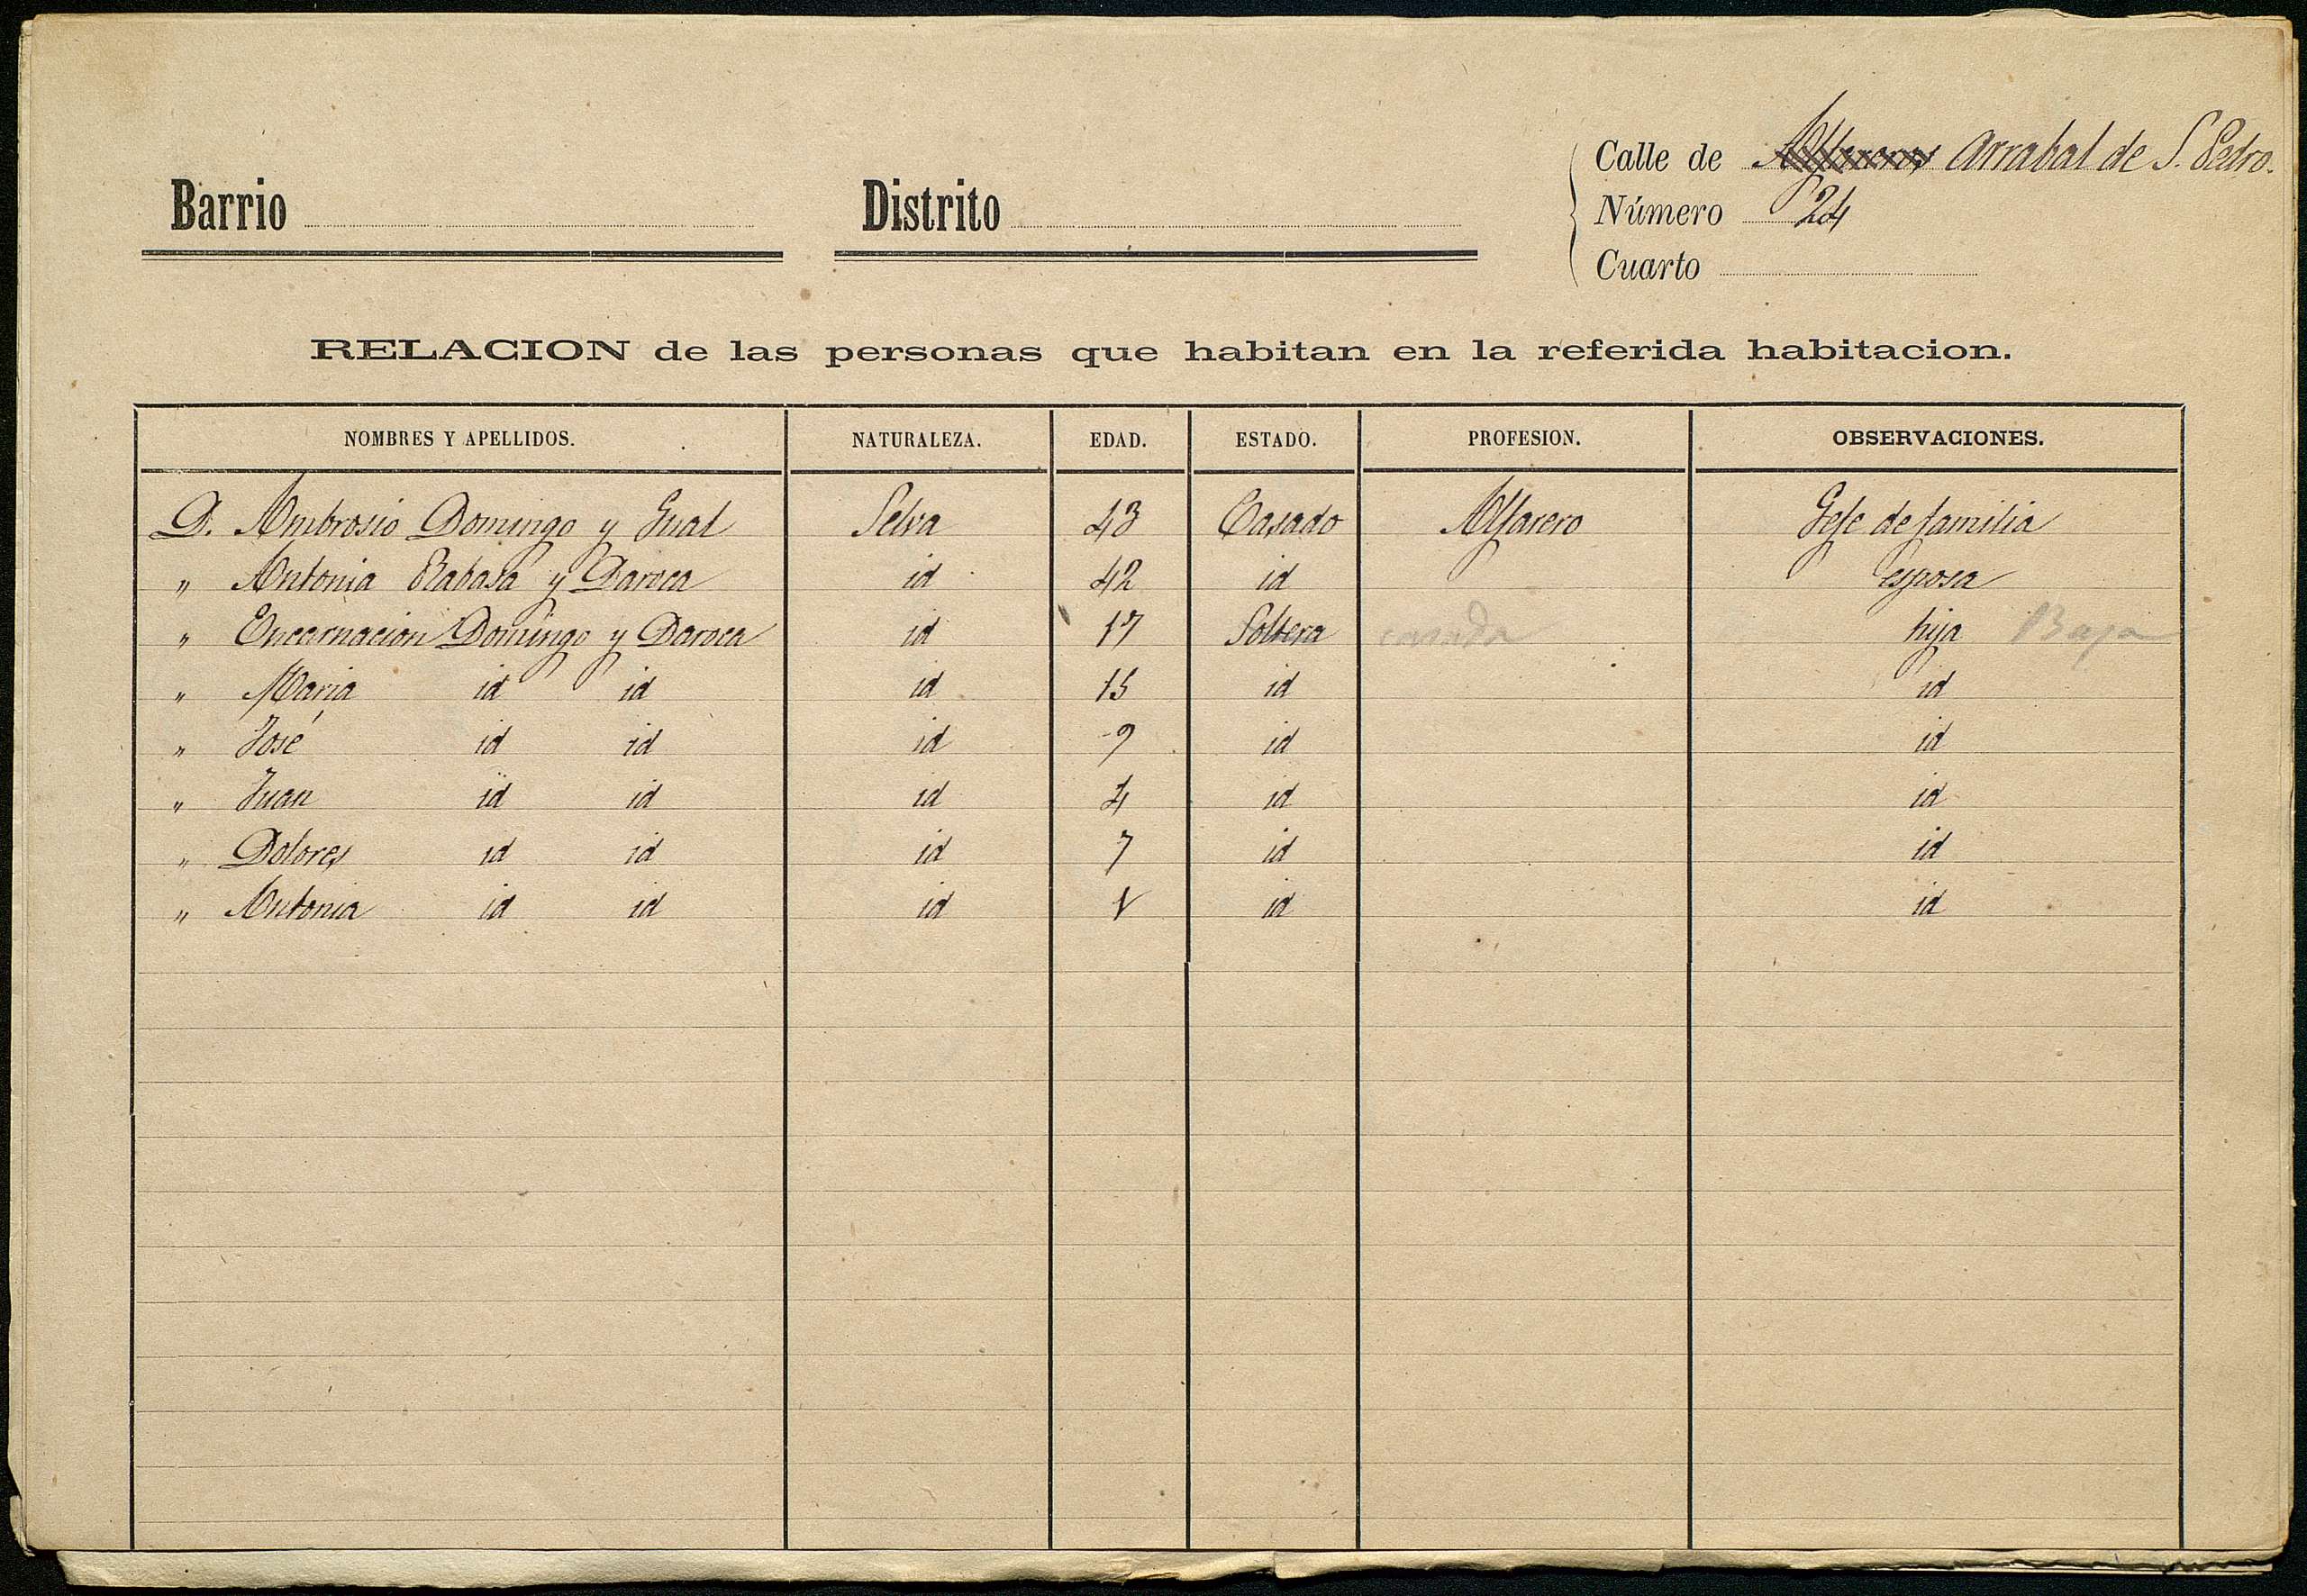 Calle de Alfareros Arrabal de S. Pedro.
Barrio Distrito Número 24
Cuarto
RELACION de las personas que habitan en la referida habitacion.
NOMBRES Y APELLIDOS. NATURALEZA. EDAD. ESTADO. PROFESION. OBSERVACIONES.
D. Ambrosio Domingo y Gual Selva 43 Casado Alfarero Gefe de familia
" Antonia Rabasa y Daroca id 42 id esposa
" Encarnacion Domingo y Daroca id 17 Soltera casada hija Baja
" Maria id id id 15 id id
" José id id id 9 id id
" Juan id id id 4 id id
" Dolores id id id 7 id id
" Antonia id id id 1 id id